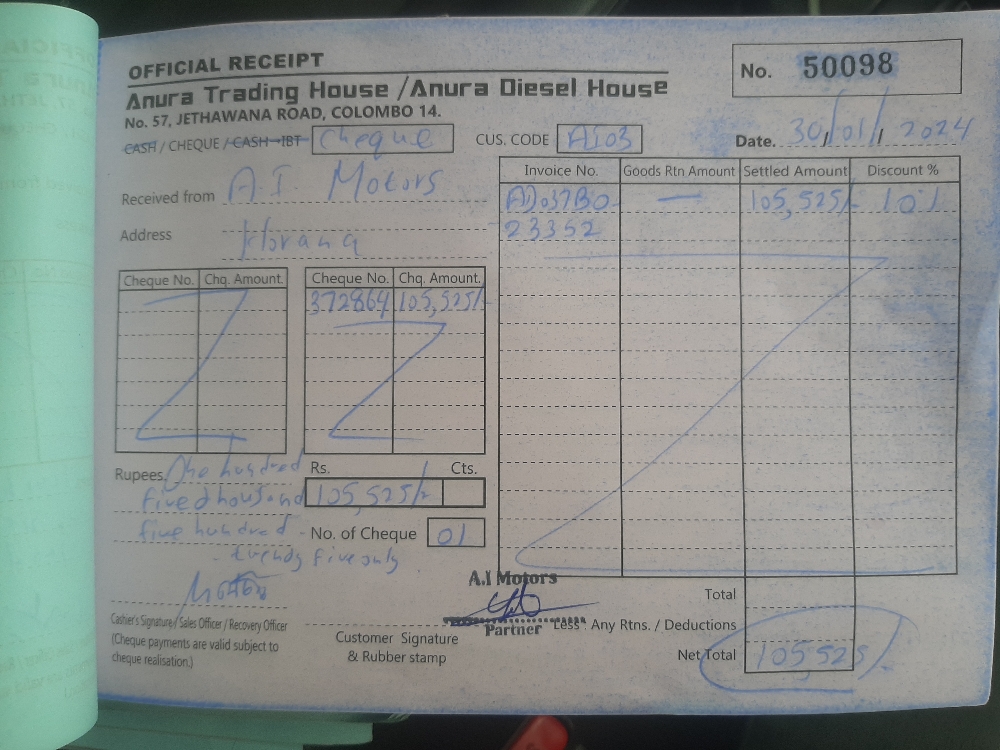 OFFICIAL RECEIPT
Anura Trading House /Anura Diesel House
No. 57, JETHAWANA ROAD, COLOMBO 14.
No. 50098
CASH / CHEQUE / CASH-IBT Cheque
CUS. CODE AI03
Date. 30/01/2024
Received from A.I. Motors
Address Horana
Invoice No. Goods Rtn Amount Settled Amount Discount %
105,525/- 10%
23352
Cheque No. Chq. Amount. Cheque No. Chq. Amount.
372864 105,525/-
Rupees. One hundred
five thousand
five hundred
twenty five only
Rs. Cts.
105,525/-
No. of Cheque 01
A.I Motors
Partner
Cashier's Signature/ Sales Officer / Recovery Officer
(Cheque payments are valid subject to
cheque realisation.)
Customer Signature
& Rubber stamp
Total
Less : Any Rtns. / Deductions
Net Total 105,525/-